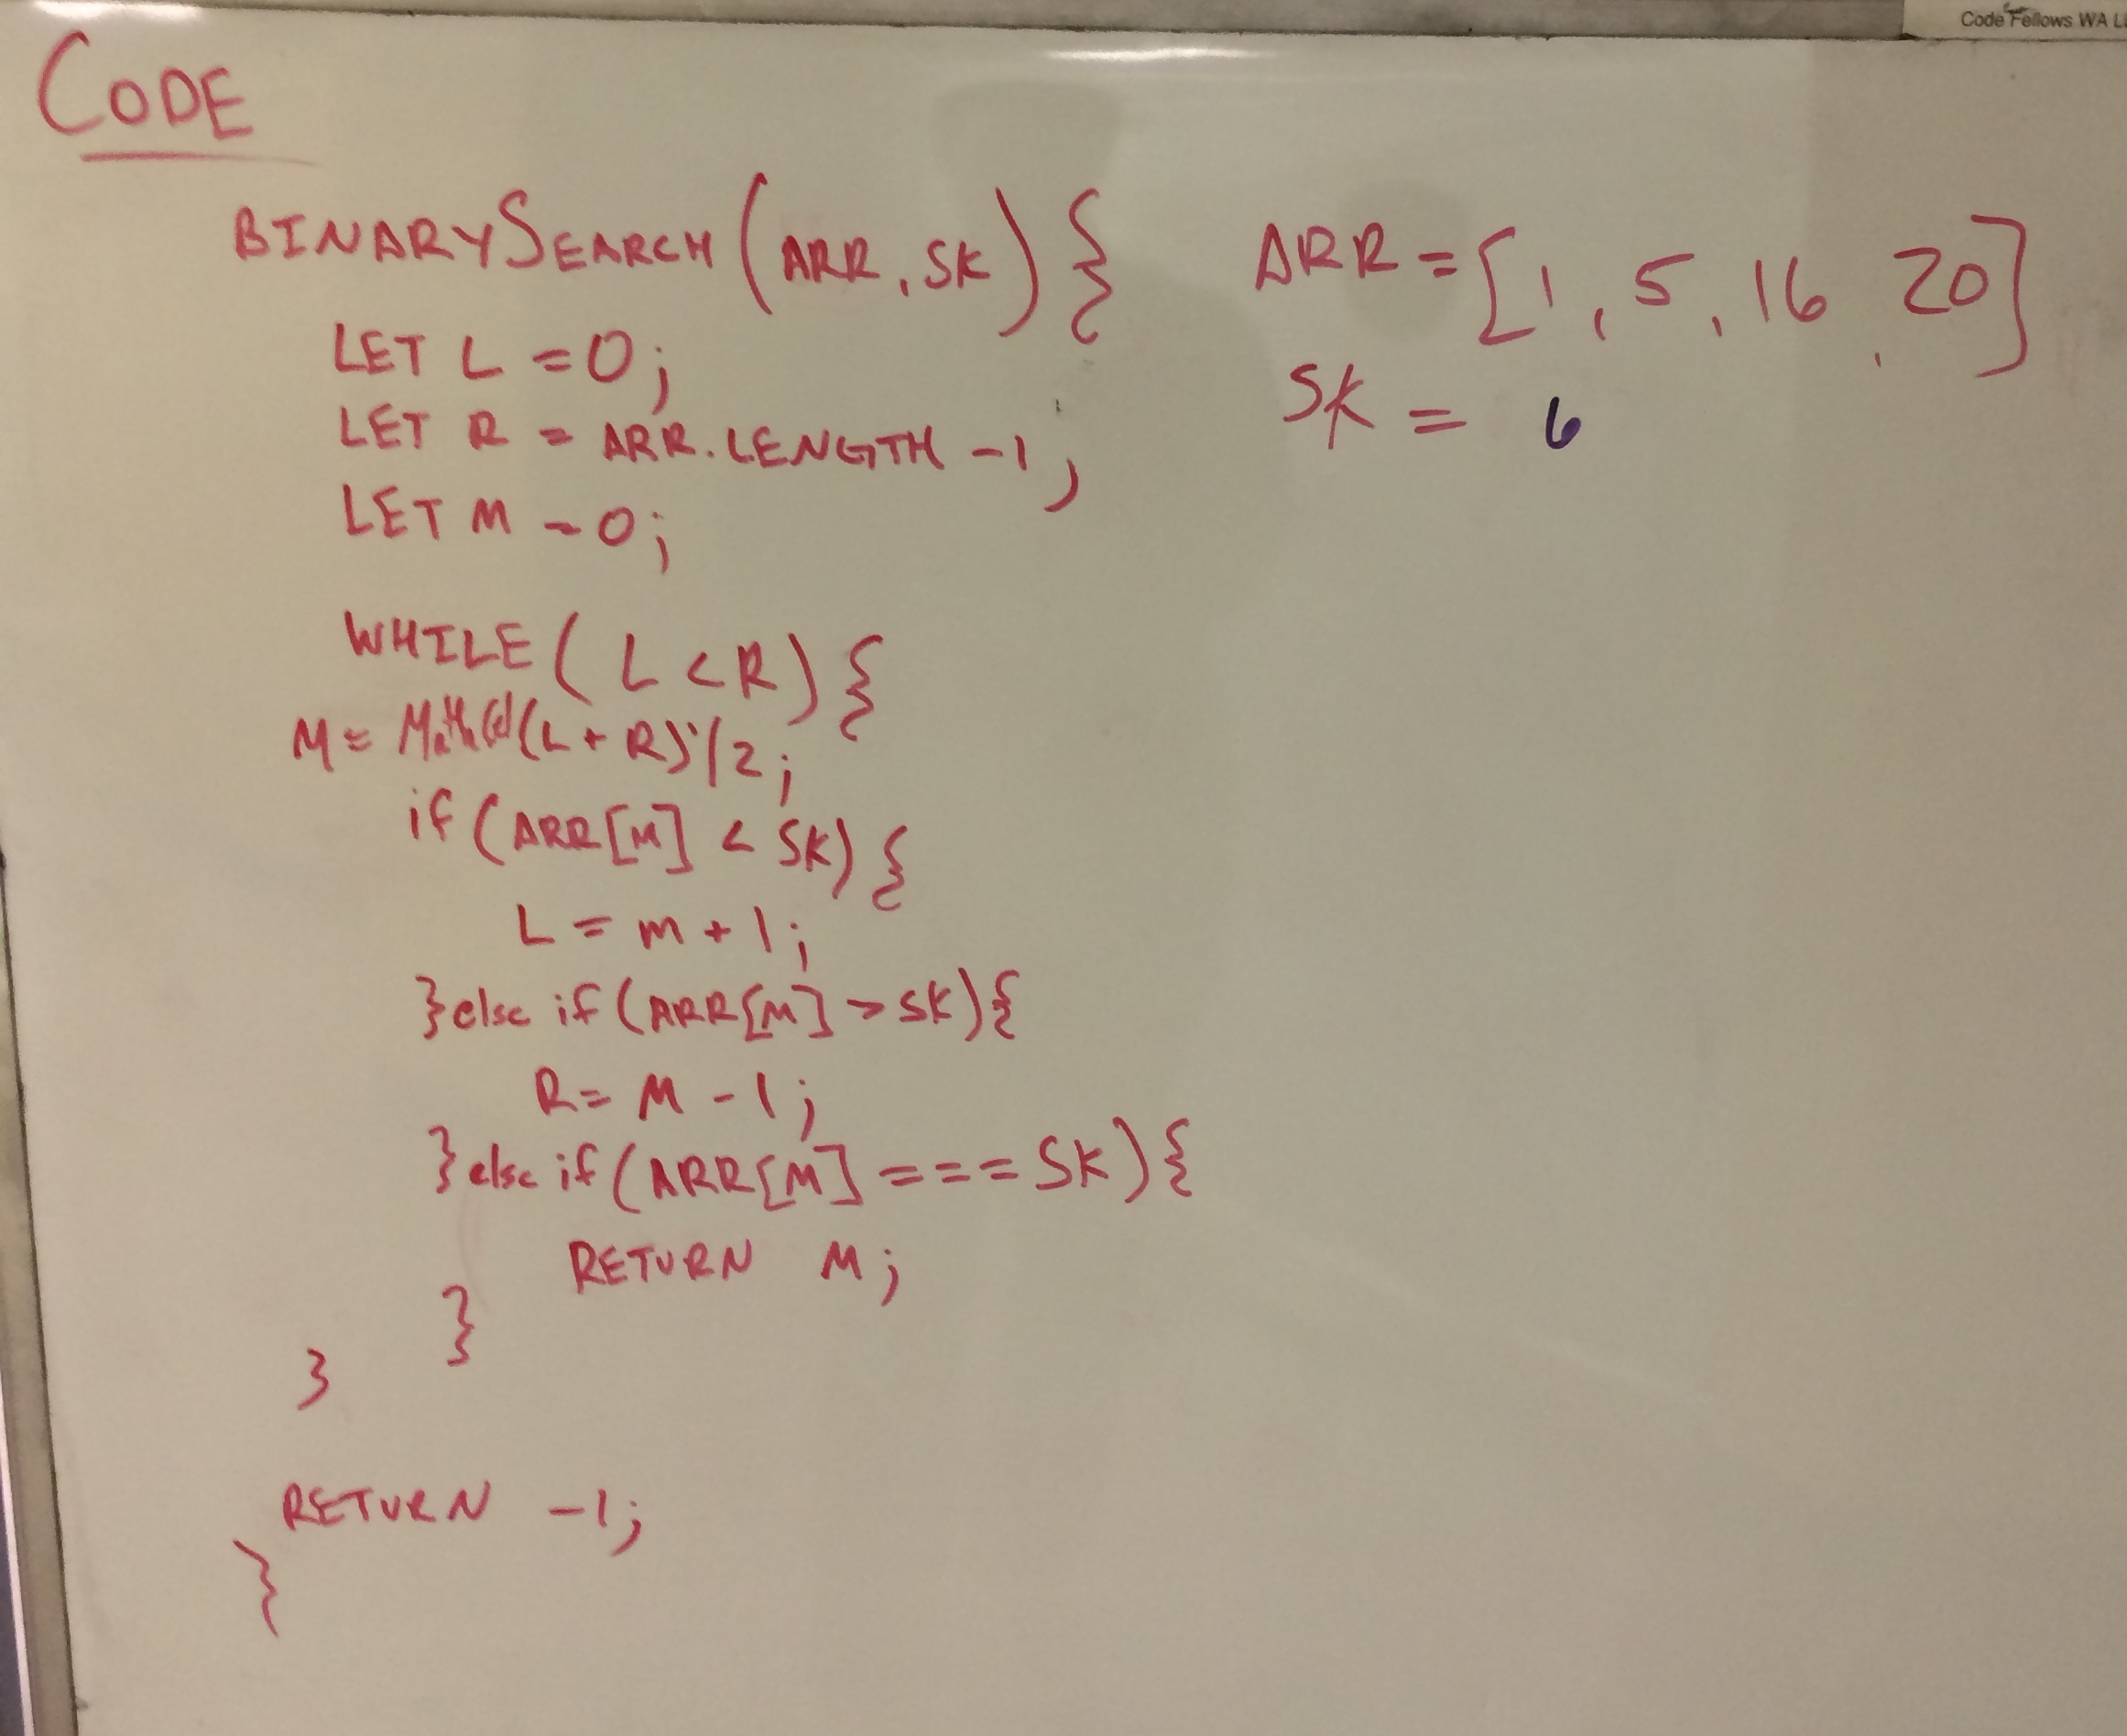 Code Fellows WA L
CODE
BINARYSEARCH(ARR, SK) {
LET L = 0;
LET R = ARR.LENGTH -1;
LET M = 0;
WHILE( L < R) {
M = (L + R)/2;
if (ARR[M] < SK) {
L = m + 1;
}else if (ARR[M] > SK){
R = M - 1;
}else if (ARR[M] === SK){
RETURN M;
}
}
RETURN -1;
}
ARR = [1, 5, 16, 20]
SK = 6